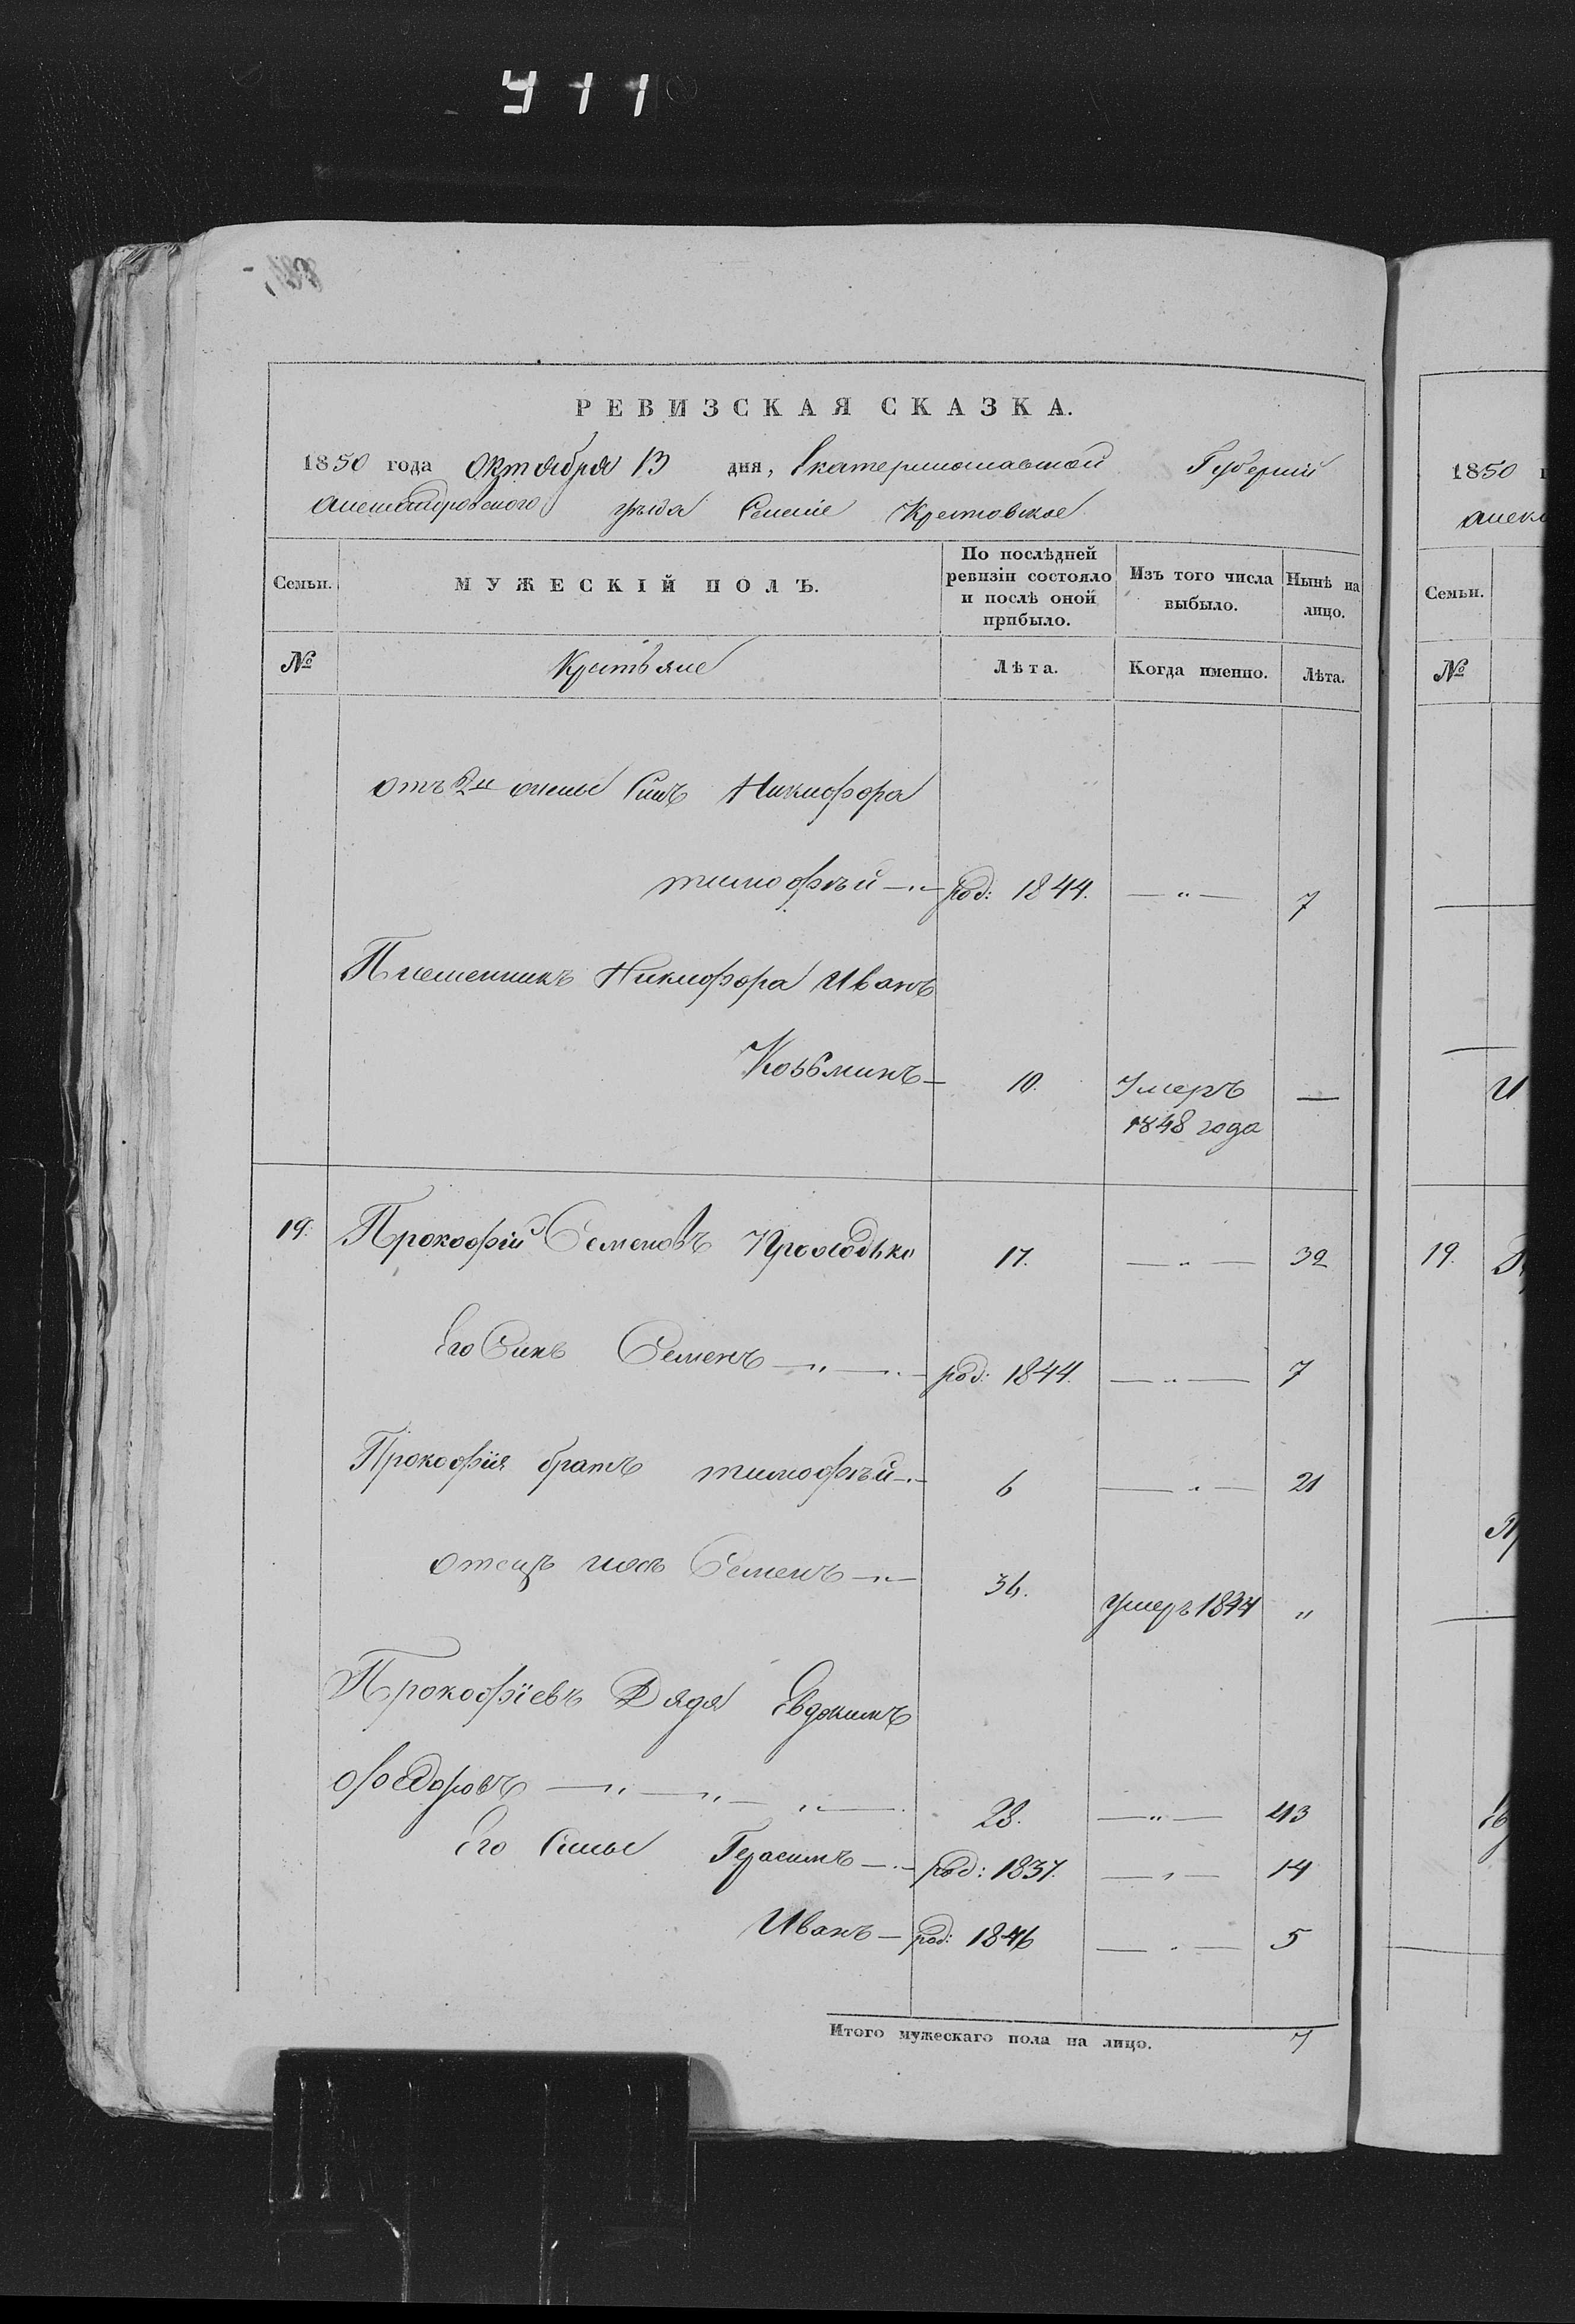 411
РЕВИЗСКАЯ СКАЗКА.
1850 года Октября 13 дня, Екатеринославской Губернии
Александровского уезда Селение Крестовское
Семьи.
МУЖЕСКІЙ ПОЛЪ.
По послѣдней ревизіи состояло и послѣ оной прибыло.
Изъ того числа выбыло.
Нынѣ на лицо.
№ Крестьяне Лѣта. Когда именно. Лѣта.
отъ 2й жены Сынъ Никифора
тимофѣй —"— род: 1844. —"— 7
Племенникъ Никифора Иванъ
Козьминъ — 10. Умеръ —
1848 года
19. Прокофій Семеновъ 17. —"— 32
Его Синъ Семенъ —"— род: 1844. —"— 7
Прокофія братъ тимофѣй —"— 6 —"— 21
отецъ ихъ Семенъ —"— 36. умеръ 1844 "
Прокофіевъ Дядя Евдокимъ
Федоровъ —"—"—"— 28. —"— 43
Его Сины Герасимъ —"— род: 1837. —"— 14
Иванъ — род: 1846 —"— 5
Итого мужескаго пола на лицо. 7
1850
алекс
Семьи.
№
19.